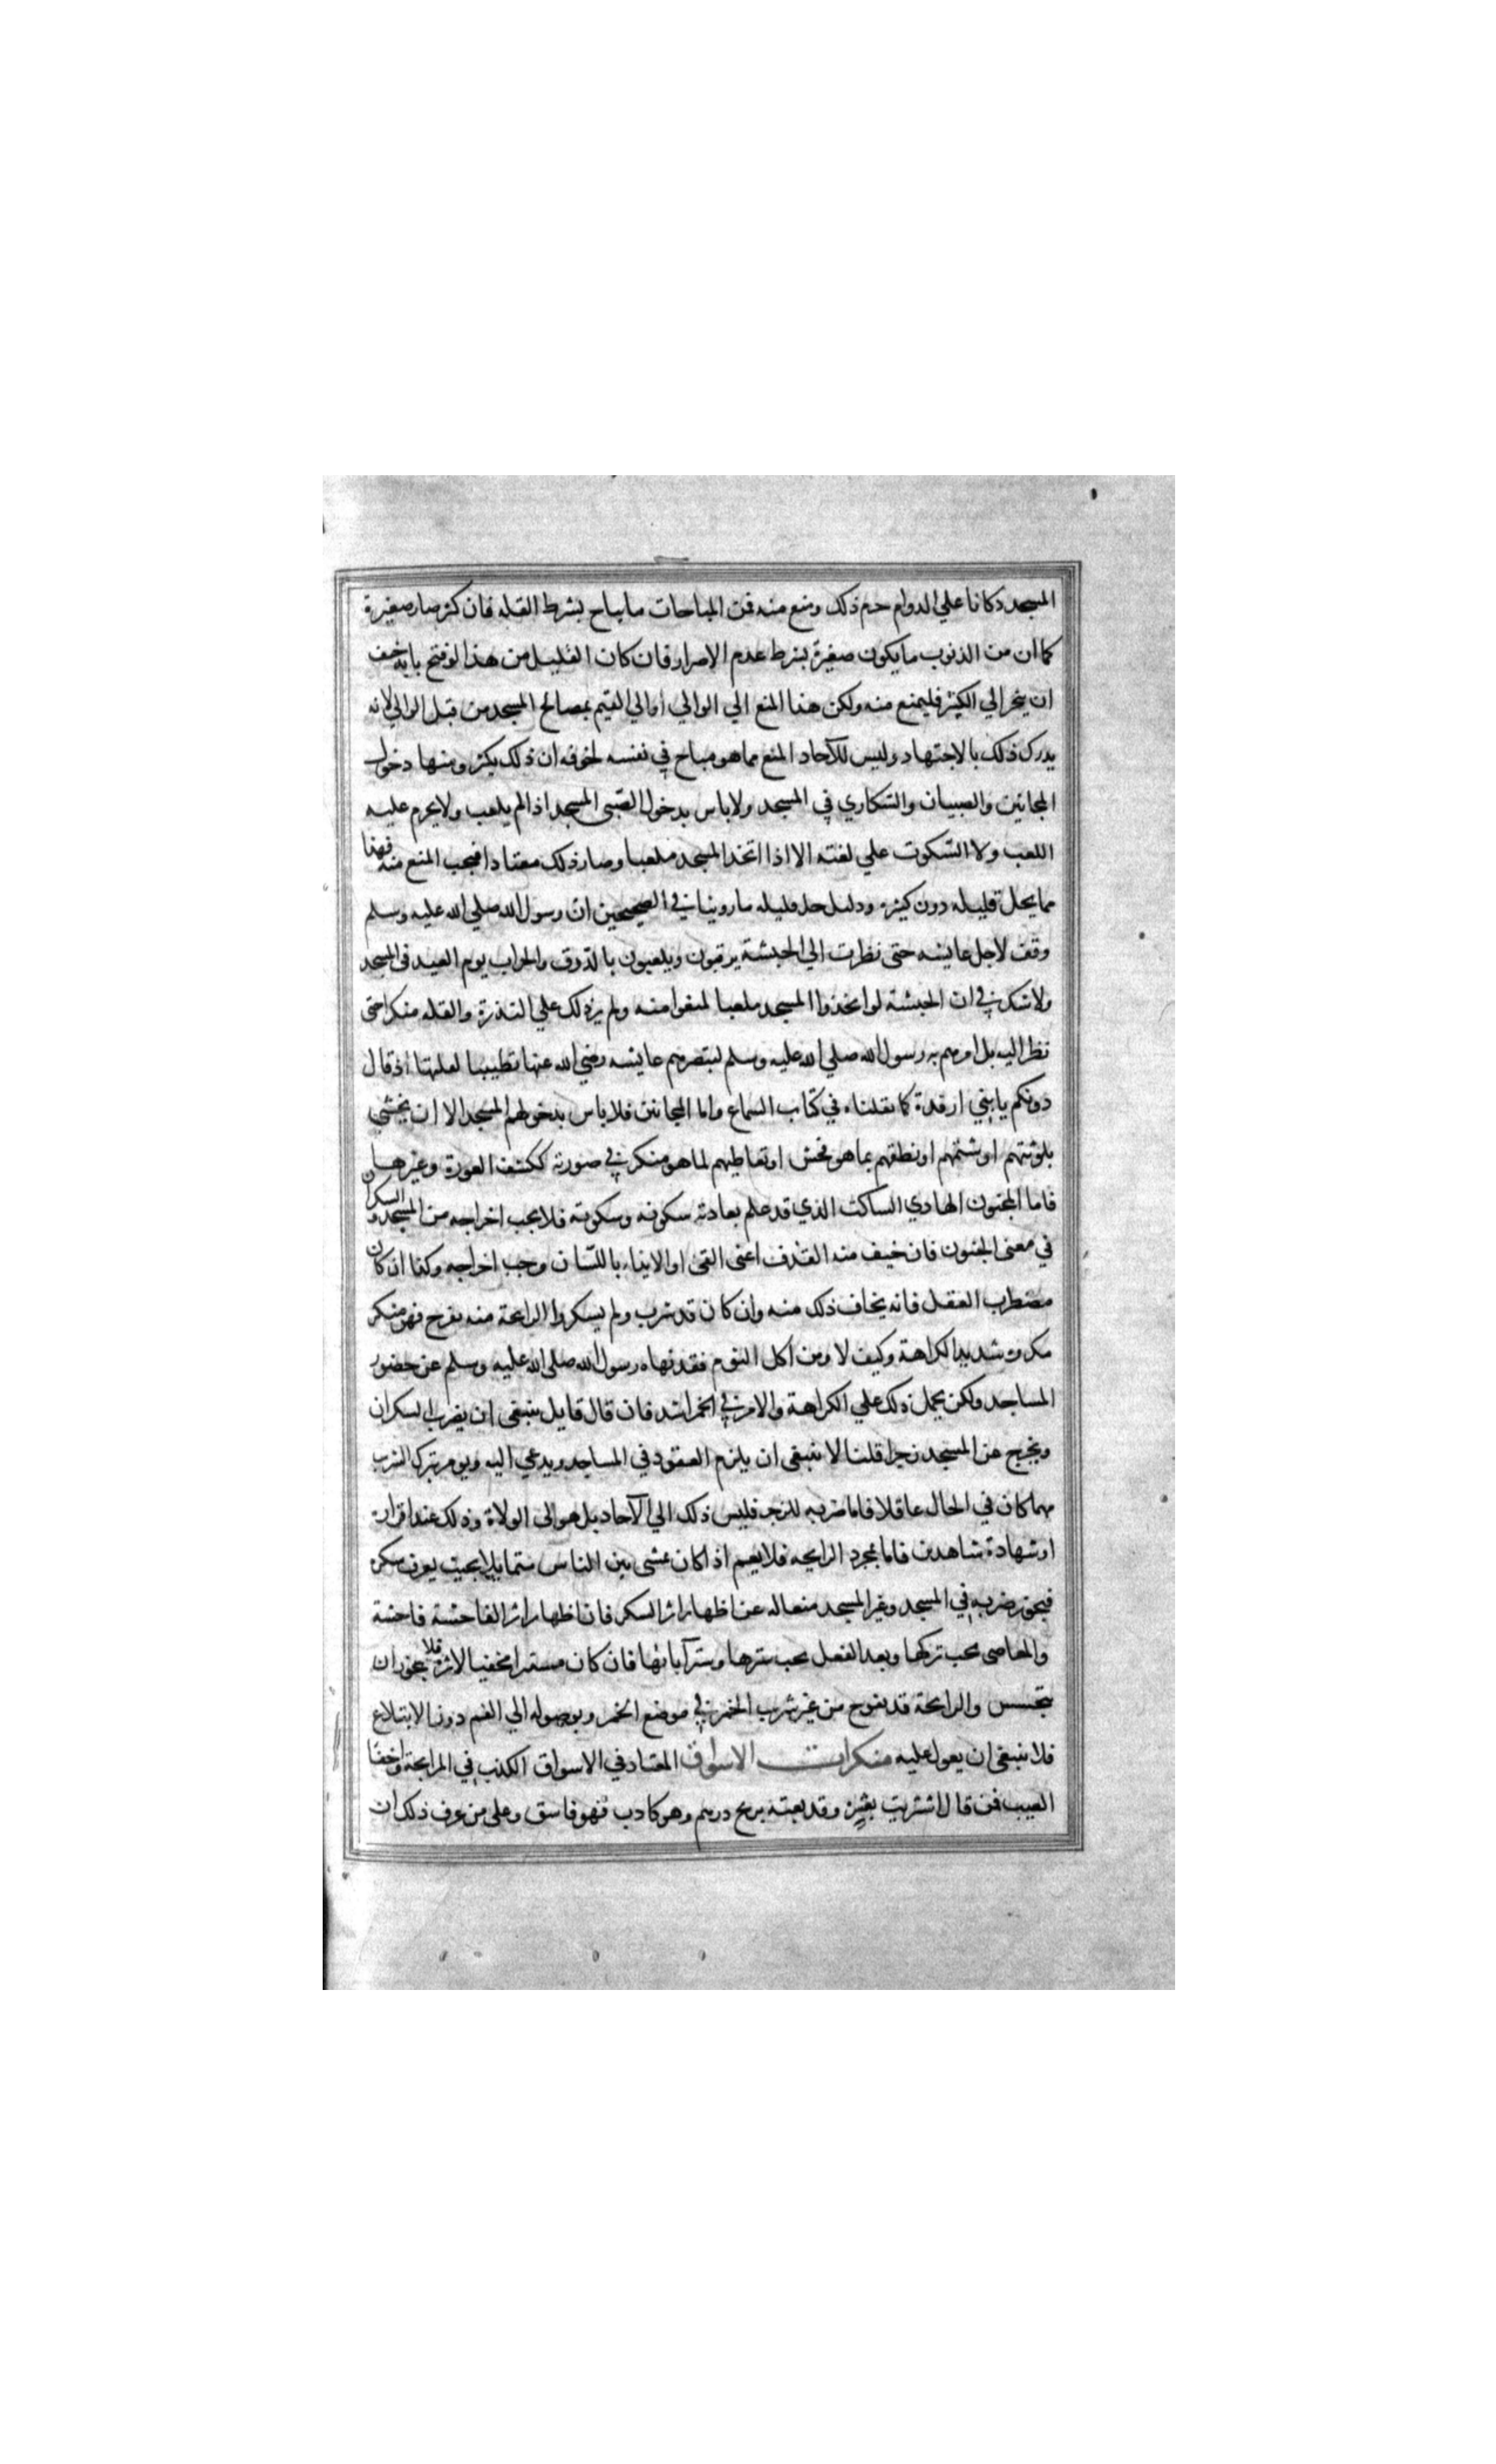 المسجد دكانا علي الدوام حرم ذلك ومنع منه فمن المباحات مايباح بشرط القله فان كثر صار صغيرة
كما ان من الذنوب مايكون صغيرة بشرط عدم الاصرار فان كان القليل من هذا لو فتح بابه خيف
ان ينجر الي الكثير فليمنع منه وليكن هذا المنع الي الوالي أو الي القيم بمصالح المسجد من قبل الوالي لانه
يدرك ذلك بالاجتهاد وليس للآحاد المنع مماهو مباح في نفسه لخوفه ان ذلك يكثر ومنها دخول
المجانين والصبيان والسكاري في المسجد ولاباس بدخول الصبي المسجد اذا لم يلعب ولايحرم عليه
اللعب ولا السكوت علي لعبه الا اذا اتخذ المسجد ملعبا وصار ذلك معتادا فيجب المنع منه فهذا
مما يحل قليله دون كثيره ودليل حل قليله ماروينا في الصحيحين ان رسول الله صلي الله عليه وسلم
وقف لاجل عايشه حتى نظرت الي الحبشة يرقبون ويلعبون بالدرق والحراب يوم العيد في المسجد
ولاشك في ان الحبشة لو اتخذوا المسجد ملعبا لمنعوا منه ولم ير ذلك علي الندرة والقله منكرا حتى
نظر اليه بل امرهم به رسول الله صلي الله عليه وسلم لتبصرهم عايشه رضي الله عنها تطييبا لقلبها اذ قال
دونكم يابني ارفدة كما نقلناه في كتاب السماع واما المجانين فلاباس بدخولهم المسجد الا ان يخشي
تلويثهم او شتمهم او نطقهم بما هو فحش او تعاطيهم لما هو منكر في صورته ككشف العورة وغيرها
فاما المجنون الهادي الساكن الذي قد علم بعادته سكونه وسكوته فلا يجب اخراجه من المسجد والسكران
في معنى المجنون فان خيف منه القذف اعني القئ او الايذاء باللسان وجب اخراجه وكذا ان كان
مضطرب العقل فانه يخاف ذلك منه وان كان قد شرب ولم يسكر والرايحة منه تفوح فهو منكر
مكروه شديد الكراهة وكيف لا ومن اكل الثوم فقد نهاه رسول الله صلي الله عليه وسلم عن حضور
المساجد ولكن يحمل ذلك علي الكراهة والامر في الخمر اشد فان قال قايل ينبغي ان يضرب السكران
ويخرج عن المسجد زجرا قلنا لا ينبغي ان يلزم القعود في المساجد ويدعي اليه ويومر بترك الشرب
مهما كان في الحال عاقلا فاما ضربه للزجر فليس ذلك الي الآحاد بل هو الى الولاة وذلك عند اقراره
او شهادة شاهدين فاما لمجرد الرايحه فلا نعم اذا كان يمشي بين الناس متمايلا بحيث يعرف سكره
فيجوز ضربه في المسجد وغير المسجد منعا له عن اظهار اثر السكر فان اظهار اثر الفاحشة فاحشة
والمعاصي يجب تركها وبعد الفعل يجب سترها وستر آثارها فان كان مستترا مخفيا لاثره فلا يجوز ان
يتجسس والرايحة قد تفوح من غير شرب الخمر في موضع الخمر وبوصوله الي الفم دون الابتلاع
فلا ينبغي ان يعول عليه منكرات الاسواق المعتاد في الاسواق الكذب في المرابحة واخفا
العيب فمن قال اشتريت بعشرة وقد بعته بربح درهم وهو كاذب فهو فاسق وعلى من عرف ذلك ان